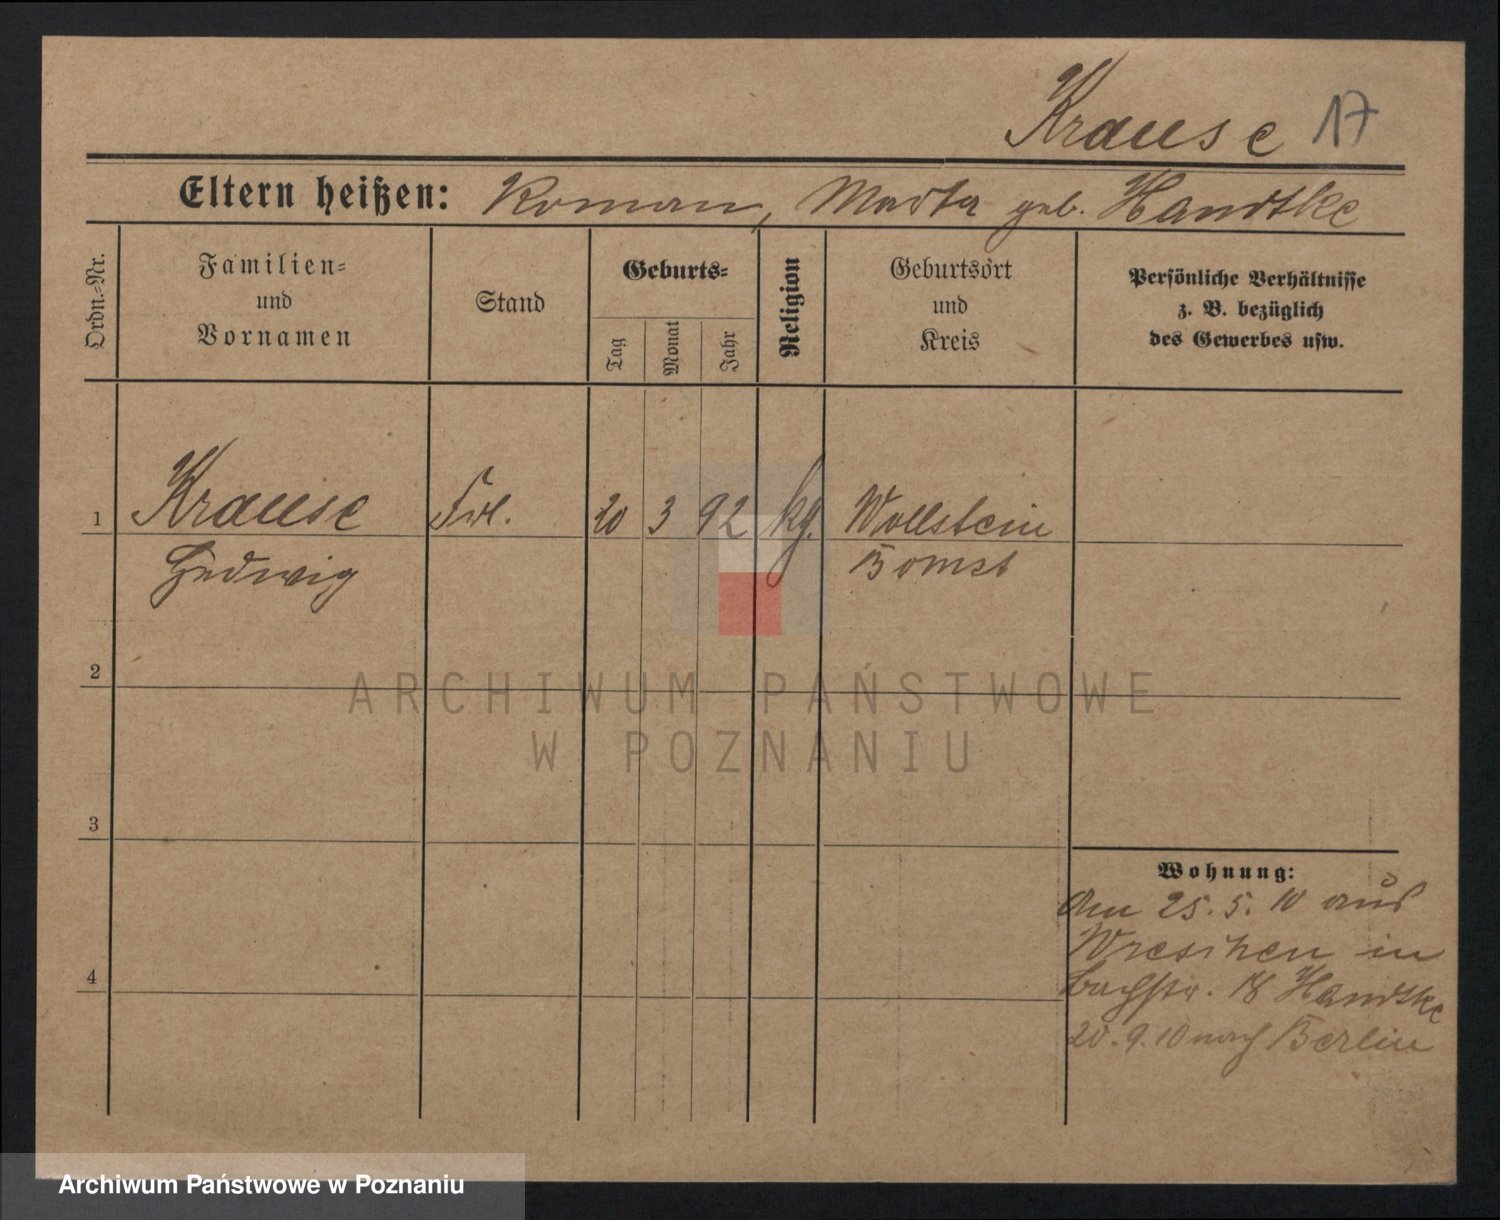 Krause 17
Eltern heißen: Roman, Marta geb. Handtke
Ordn.-Nr.
Familien-
und
Vornamen
Stand
Geburts-
Tag
Monat
Jahr
Religion
Geburtsort
und
Kreis
Persönliche Verhältnisse
z. B. bezüglich
des Gewerbes usw.
1 Krause Frl. 20 3 92 kg. Wollstein
Hedwig Bomst
2
3
4
Wohnung:
Am 25. 5. 10 aus
Wreschen in
Bachstr. 18 Handtke
20. 9. 10 nach Berlin
ARCHIWUM PAŃSTWOWE
W POZNANIU
Archiwum Państwowe w Poznaniu